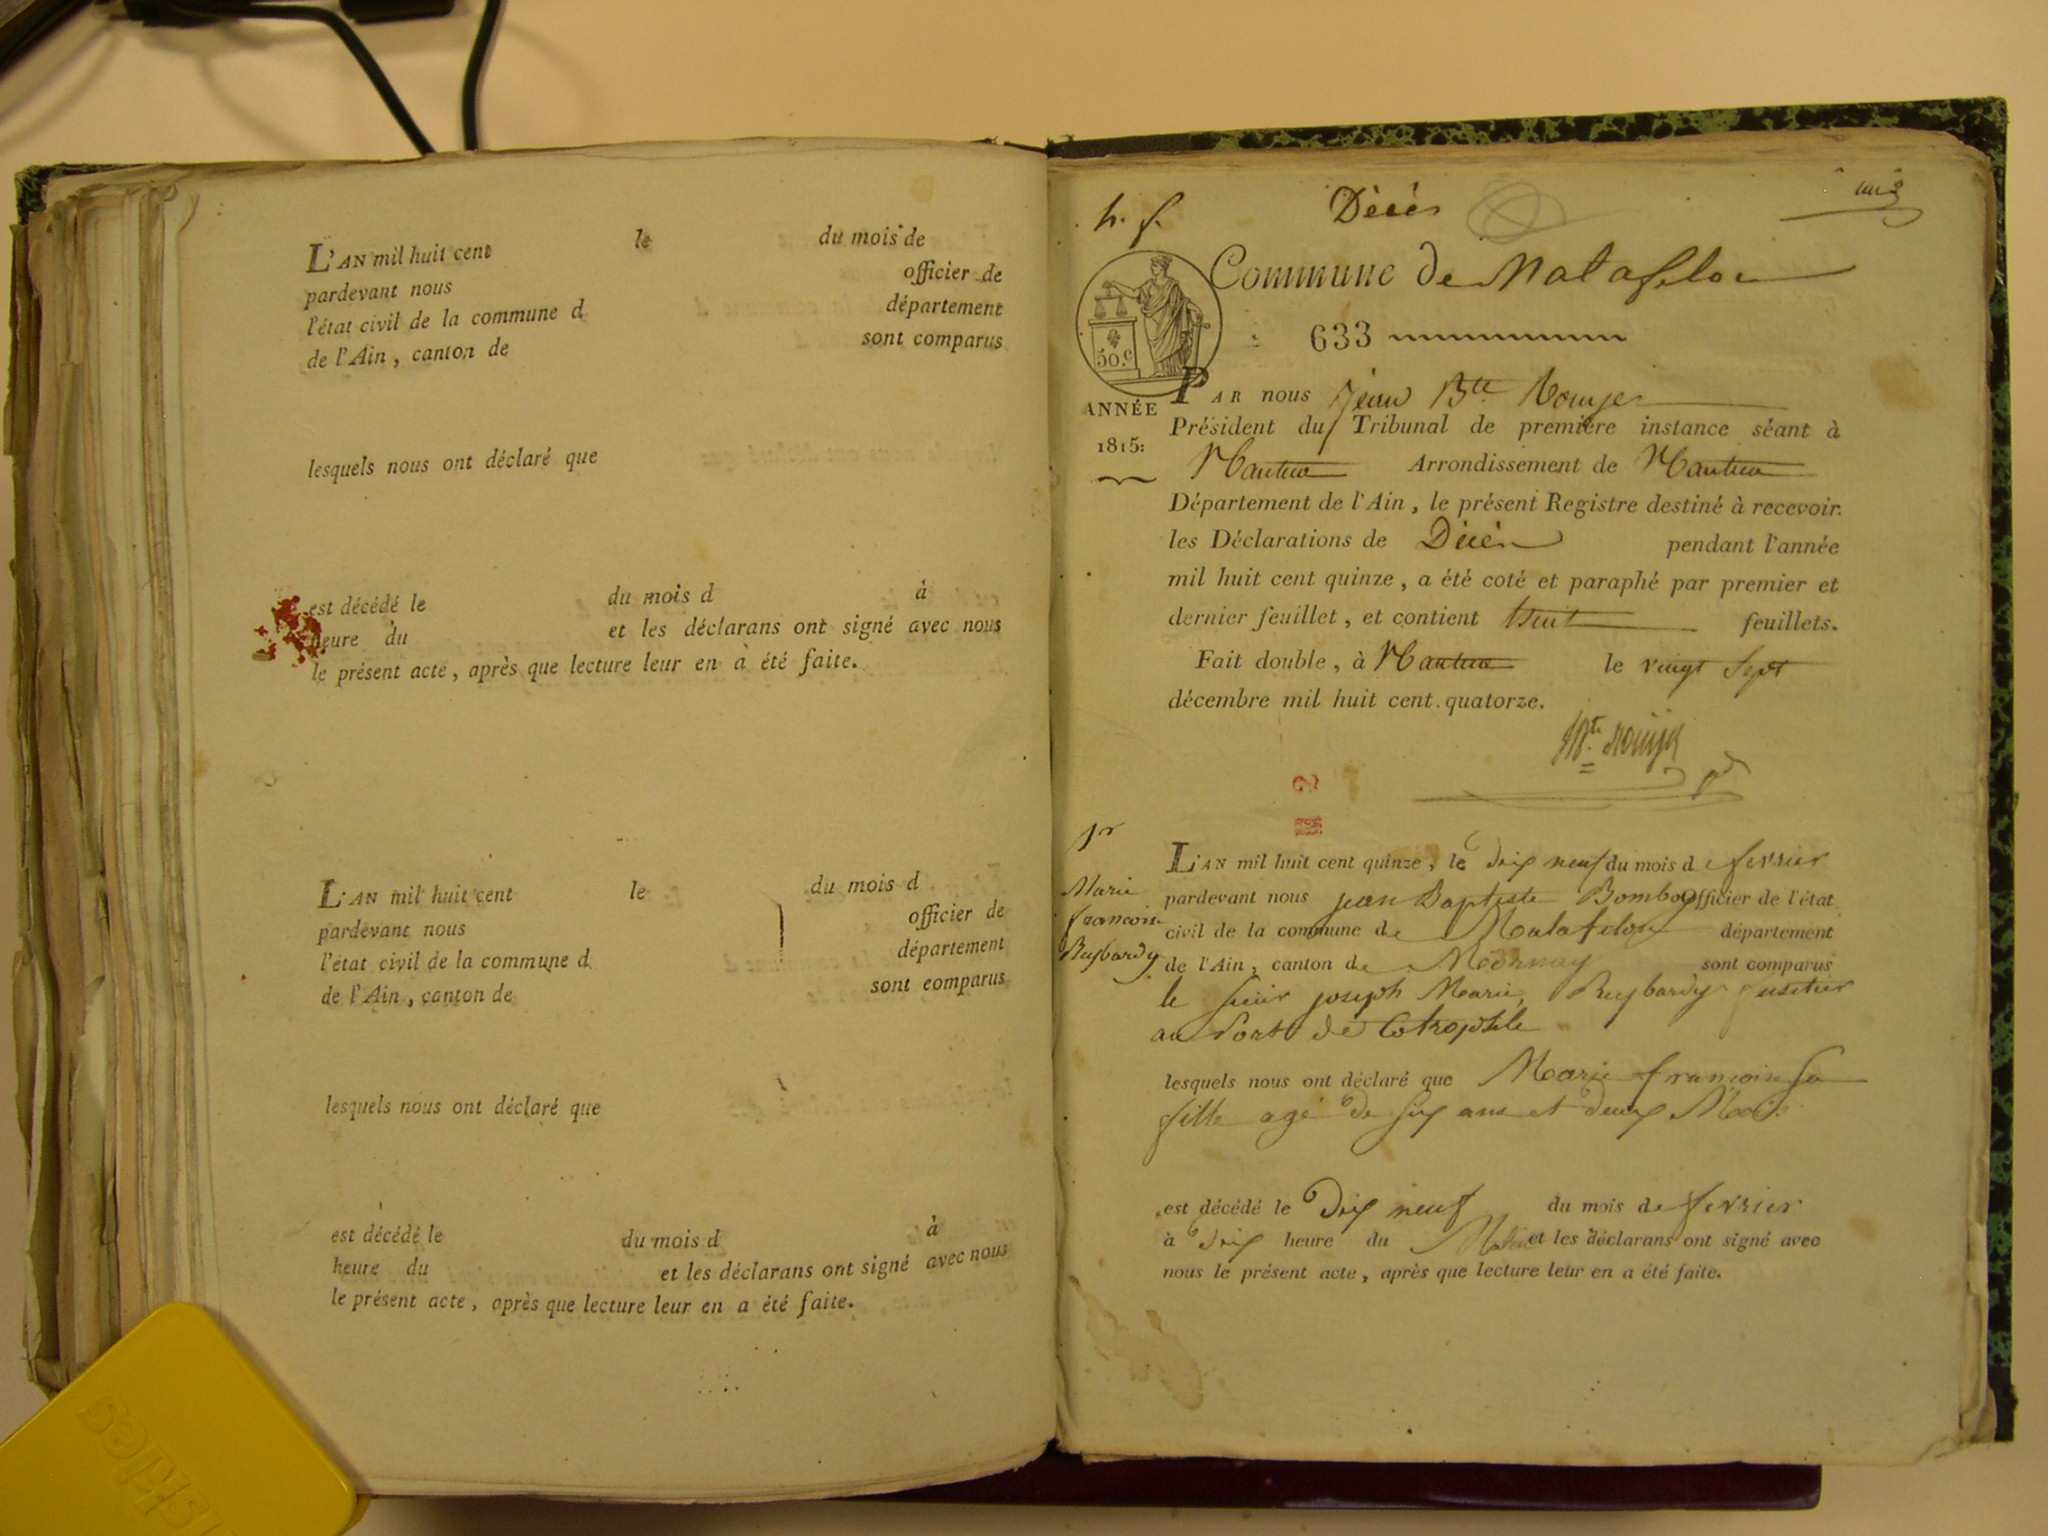 L'AN mil huit cent le du mois de
pardevant nous officier de
l'état civil de la commune d département
de l'Ain, canton de sont comparus
lesquels nous ont déclaré que
est décédé le du mois d à
heure du et les déclarans ont signé avec nous
le présent acte, après que lecture leur en à été faite.
L'AN mil huit cent le du mois d
pardevant nous officier de
l'état civil de la commune d département
de l'Ain, canton de sont comparus
lesquels nous ont déclaré que
est décédé le du mois d à
heure du et les déclarans ont signé avec nous
le présent acte, après que lecture leur en a été faite.
h. f. Décès
Commune de Matafelon
633
50.c
ANNÉE
1815:
PAR nous Jean Bte
Président du Tribunal de première instance séant à
Nantua Arrondissement de Nantua
Département de l'Ain, le présent Registre destiné à recevoir
les Déclarations de Décès pendant l'année
mil huit cent quinze, a été coté et paraphé par premier et
dernier feuillet, et contient huit feuillets.
Fait double, à Nantua le vingt Sept
décembre mil huit cent quatorze.
1er
Marie
francoise
Reybardy
L'AN mil huit cent quinze, le dix neuf du mois de fevrier
pardevant nous jean Baptiste Bomboy Officier de l'état
civil de la commune de Matafelon département
de l'Ain, canton de sont comparus
le sieur joseph Marie Reybardy
au Port de
lesquels nous ont déclaré que Marie francoise sa
fille agé de six ans et deux Mois
est décédé le Dix neuf du mois de fevrier
à Dix heure du Matin et les déclarans ont signé avec
nous le présent acte, après que lecture leur en a été faite.